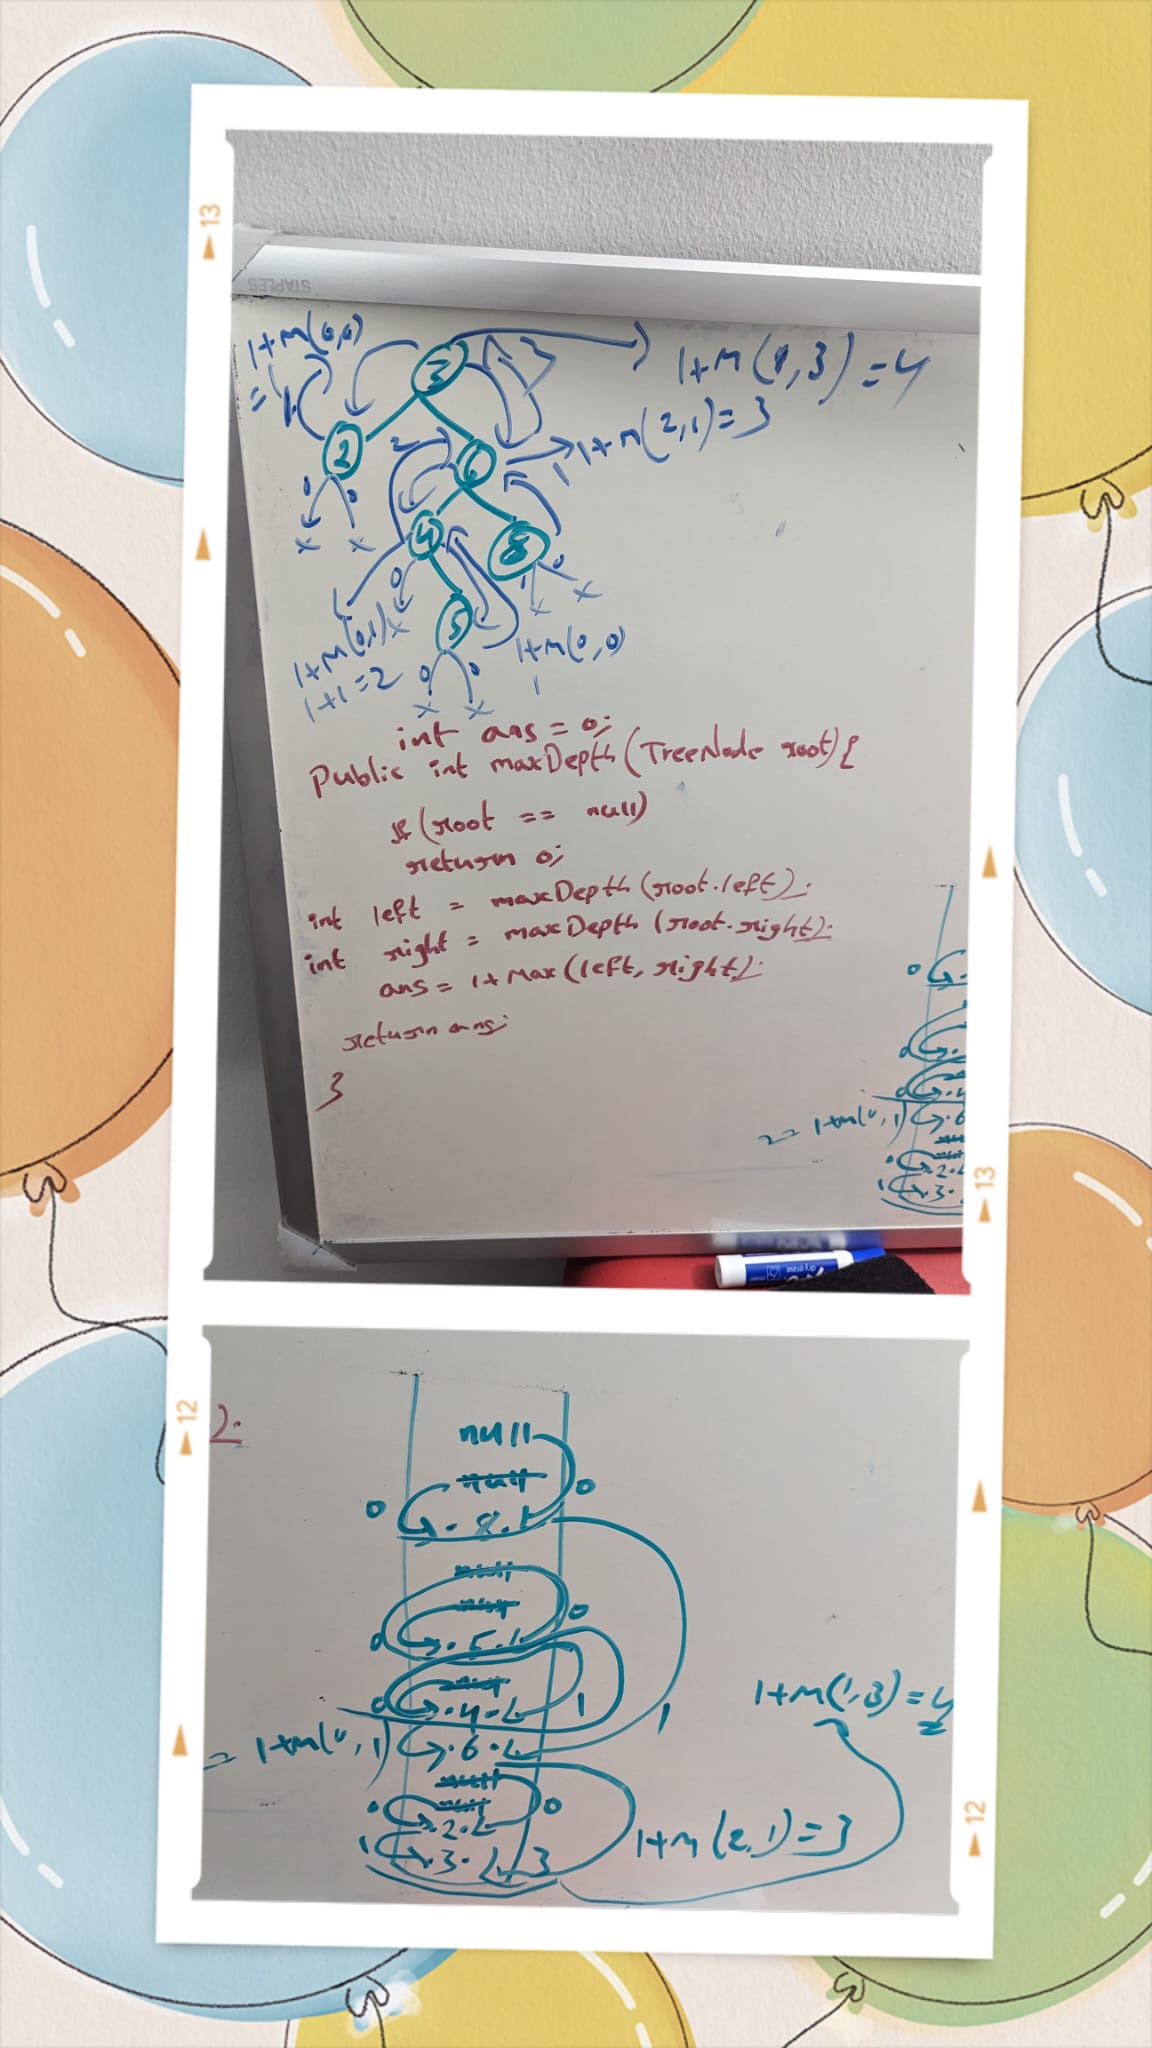 13
STAPLES
1+m(0,0)
= 1
3
3
1+m(1,3) = 4
2
2
6
1+m(2,1) = 3
1
0 0
x x
4
8
0
x
0
x x
5
1+m(0,1)
1+1=2
1+m(0,0)
1
0 0
x x
int ans = 0;
Public int maxDepth(TreeNode root){
if(root == null)
return 0;
int left = maxDepth(root.left);
int right = maxDepth(root.right);
ans = 1+Max(left, right);
return ans;
}
0
2= 1+m(0,1) .6
0 .2.L
1 .3.
13
dry erase
12
);
null
null
0 0
.8.L
null
null
0
0 .5.L
null
0 .4.L 1
= 1+m(0,1) .6.L
1
1+m(1,3) = 4
null
null
0 .2.L 0
1 .3.L 3
1+m(2,1) = 3
12